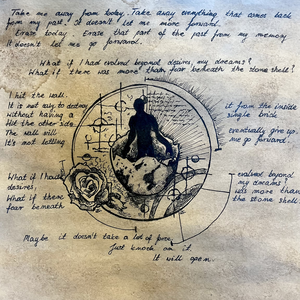 Take me away from today. Take away everything that comes back
from my past! It doesn't let me move forward.
Erase today. Erase that part of the past from my memory
It doesn't let me go forward.
What if I had evolved beyond desires, my dreams?
What if there was more than fear beneath the stone shell?
I hit the wall.
It is not easy to destroy it from the inside
without having a single brick
Hit the other side
The wall will eventually give up,
It's not letting me go forward.
What if I had evolved beyond
desires, my dreams?
What if there was more than
fear beneath the stone shell
Maybe it doesn't take a lot of force,
Just knock on it.
It will open.